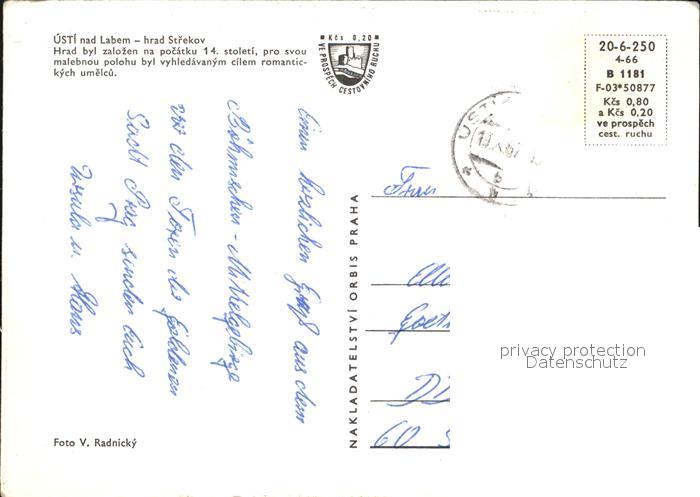 ÚSTÍ nad Labem – hrad Střekov
Hrad byl založen na počátku 14. století, pro svou
malebnou polohu byl vyhledávaným cílem romantic-
kých umělců.
Kčs 0,20
VE PROSPĚCH CESTOVNÍHO RUCHU
20-6-250
4-66
B 1181
F-03*50877
Kčs 0,80
a Kčs 0,20
ve prospěch
cest. ruchu
ÚSTÍ
Einen herzlichen Gruß aus dem
Böhmischen-Mittelgebirge
vor den Toren der goldenen
Stadt Prag senden Euch
Ursula u. Hans
NAKLADATELSTVÍ ORBIS PRAHA
Frau
60
privacy protection
Datenschutz
Foto V. Radnický